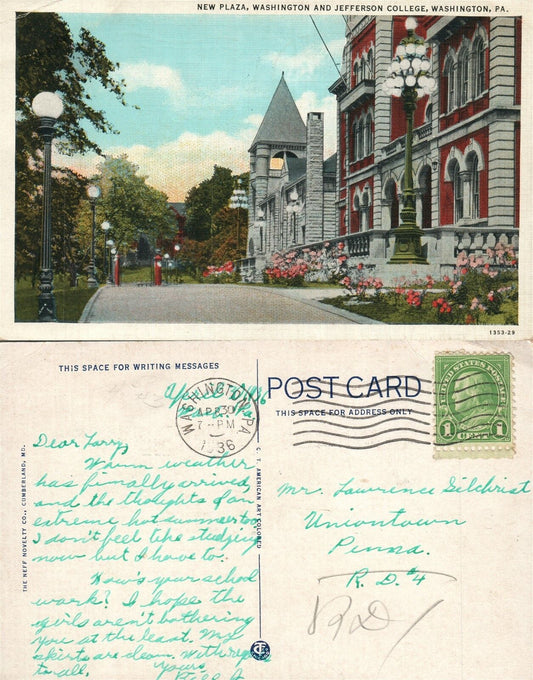 NEW PLAZA, WASHINGTON AND JEFFERSON COLLEGE, WASHINGTON, PA.
1353-29
THIS SPACE FOR WRITING MESSAGES
POST CARD
THIS SPACE FOR ADDRESS ONLY
WASHINGTON, PA.
APR 30
7-PM
1936
UNITED STATES POSTAGE
1 1
THE NEFF NOVELTY CO., CUMBERLAND, MD.
C. T. AMERICAN ART COLORED
Dear Larry,
Warm weather
has finally arrived,
and the thoughts of an
extreme hot summer too.
I don't feel like studying
now but I have to.
How's your school
work? I hope the
girls aren't bothering
you at the least. My
skirts are clean. With regards
to all,
Yours
Mr. Lawrence Gilchrist
Uniontown
Penna.
R. D. #4
RD